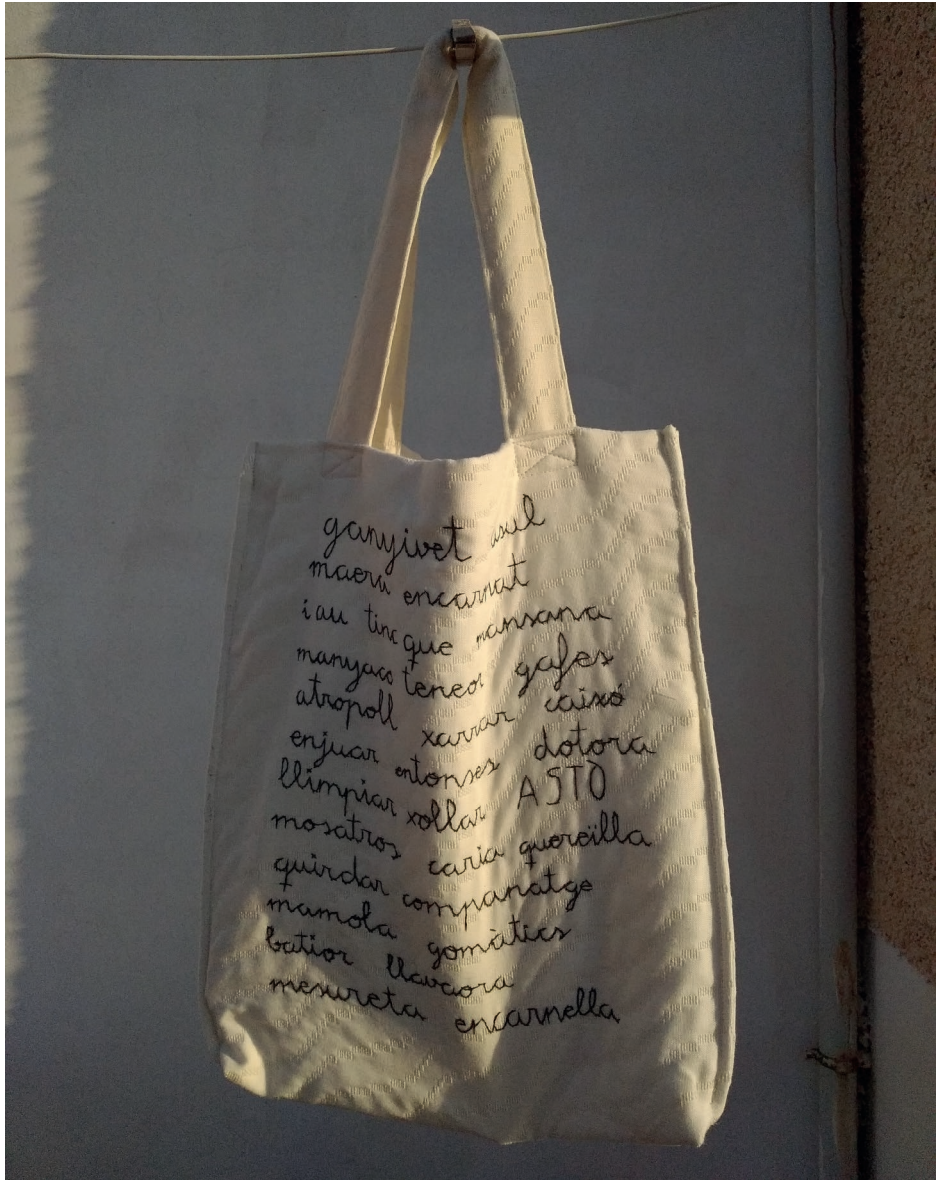 ganyivet asul
maeru encarnat
iau tinc que mansana
manyaco teneor gafes
atropoll xarrar caixó
enjuar entonses dotora
llimpiar xollar ASTÒ
mosatros caria quereïlla
quirdar companatge
mamola gomàtics
batior llavaora
mesureta encarnella